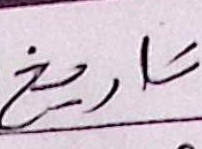 تاریخ